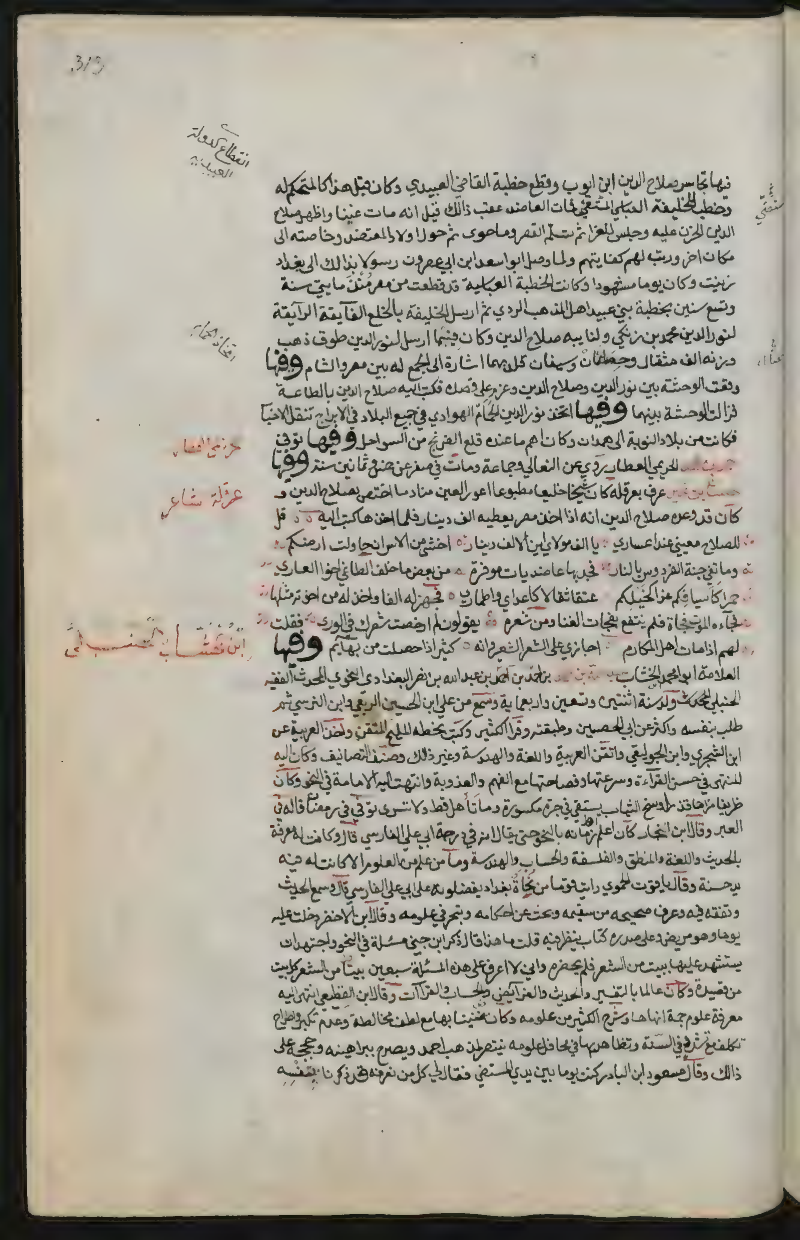 319
انقطاع دولة
العبيدية
فيها تجاسر صلاح الدين ابن ايوب وقطع خطبة القاضي العبيدي وكان قبل هذا كالمتحكم له
وخطب للخليفة العباسي المستضي فمات العاضد عقب ذالك قيل انه مات غبنا واظهر صلاح
الدين الحزن عليه وجلس للعزا ثم تسلم القصر وما حوى ثم حول اولاد المعتضد وخاصته الى
مكان اخر ورتب لهم كفايتهم ولما وصل ابو اسعد ابن ابي عصرون رسولا بذالك الى بغداد
زينت وكان يوما مشهودا وكانت الخطبة العباسية قد قطعت من مصر منذ مايتي سنة
وتسع سنين بخطبة بني عبيد اهل المذهب الردي ثم ارسل الخليفة بالخلع الفايقة الرايقة
لنور الدين محمد بن زنكي ولنايبه صلاح الدين وكان فيما ارسل لنور الدين طوق ذهب
وزنه الف مثقال وحصانان وسيفان كل بهما اشارة الى الجمع له بين مصر والشام وفيها
وقعت الوحشة بين نور الدين وصلاح الدين وعزم على قصده فكتب اليه صلاح الدين بالطاعة
فزالت الوحشة بينهما وفيها اتخذ نور الدين الحمام الهوادي في جميع البلاد في الابراج تنقل الاخبا
فكانت من بلاد النوبة الى همدان وكان اهم ما عنده قلع الفرنج من السواحل وفيها توفي
الحريمي العطار روي عن النعالي وجماعة ومات في صفر عن خمس وثمانين سنة وفيها
عرف بعرقلة كان شيخا خليعا مطبوعا اعور العين منادما اختص بصلاح الدين و
كان قد وعده صلاح الدين انه اذا اخذ مصر يعطيه الف دينار فلما اخذها كتب اليه قل
للصلاح معيني عند اعساري يا الف مولاي اين الالف دينار اخشى من الاسر ان حاولت ارضكم
وما تفي جنة الفردوس بالنار فجد بها عاضديات موفرة من بعض ما خلف الطاغي اخو العاري
حمرا كاسيافكم غرا كخيلكم عتقا ثقالا كاعدائي واطماري فجهز له الفا واخذ له من اخوته مثلها
فجاءه الموت فجاة فلم ينتفع بفجات الغنا ومن شعره يقولون لم ارخصت شعرك في الورى فقلت
لهم اذ مات اهل المكارم اجازي على الشعر الشعير وانه كثير اذا حصلت من بهايم وفيها
العلامة ابو محمد الخشاب بن احمد بن احمد بن عبدالله بن نصر البغدادي النحوي المحدث الفقيه
الحنبلي المحدث ولد سنة اثنتين وتسعين واربعماية وسمع من علي ابن الحسين الربعي وابن النرسي ثم
طلب بنفسه واكثر عن ابي الحصين وطبقته وقرا الكثير وكتب بخطه المليح المتقن واخذ العربية عن
ابن الشجري وابن الجواليقي واتقن العربية واللغة والهندسة وغير ذلك وصنف التصانيف وكان اليه
المنتهى في حسن القراءة وسرعتها وفصاحتها مع الفهم والعذوبة وانتهت اليه الامامة في النحو وكان
ظريفا مزاحا قذرا وسخ الثياب يستقي في جرة مكسورة وما تأهل قط ولا تسرى توفي في رمضان قاله في
العبر وقال ابن النجار كان اعلم اهل زمانه بالنحو حتى يقال انه في درجة ابي علي الفارسي قال وكانت له معرفة
بالحديث واللغة والمنطق والفلسفة والحساب والهندسة وما من علم من العلوم الا كانت له فيه
يد حسنة وقال ياقوت الحموي رايت قوما من نحاة بغداد يفضلونه على ابي علي الفارسي قال وسمع الحديث
وتفقه فيه وعرف صحيحه من سقيمه وبحث عن احكامه وتبحر في علومه وقال ابن الاخضر دخلت عليه
يوما وهو مريض وعلى صدره كتاب ينظر فيه قلت ما هذا قال ذكر ابن جني مسئلة في النحو واجتهد ان
يستشهد عليها ببيت من الشعر فلم يحضره واني لا اعرف على هذه المسئلة سبعين بيتا من الشعر كل بيت
من قصيدة وكان عالما بالتفسير والحديث والفرايض والحساب والقراآت وقال ابن القطيعي انتهى اليه
معرفة علوم جمة انهاها وشرح الكثير من علومه وكان ضنينا بها مع لطف مخالطة وعدم تكبر واطراح
تكلف مع تشدد في السنة وتظاهر بها في محافل علومه ينتصر لمذهب احمد ويصرح ببراهينه وحججه على
ذالك وقال مسعود ابن البادر كنت يوما بين يدي المستضي فقال لي كل من نعرفه قد ذكرنا بنفسه
اتخاذ الحمام
حريمي العطار
عرقلة شاعر
ابن خشاب الحنبلي